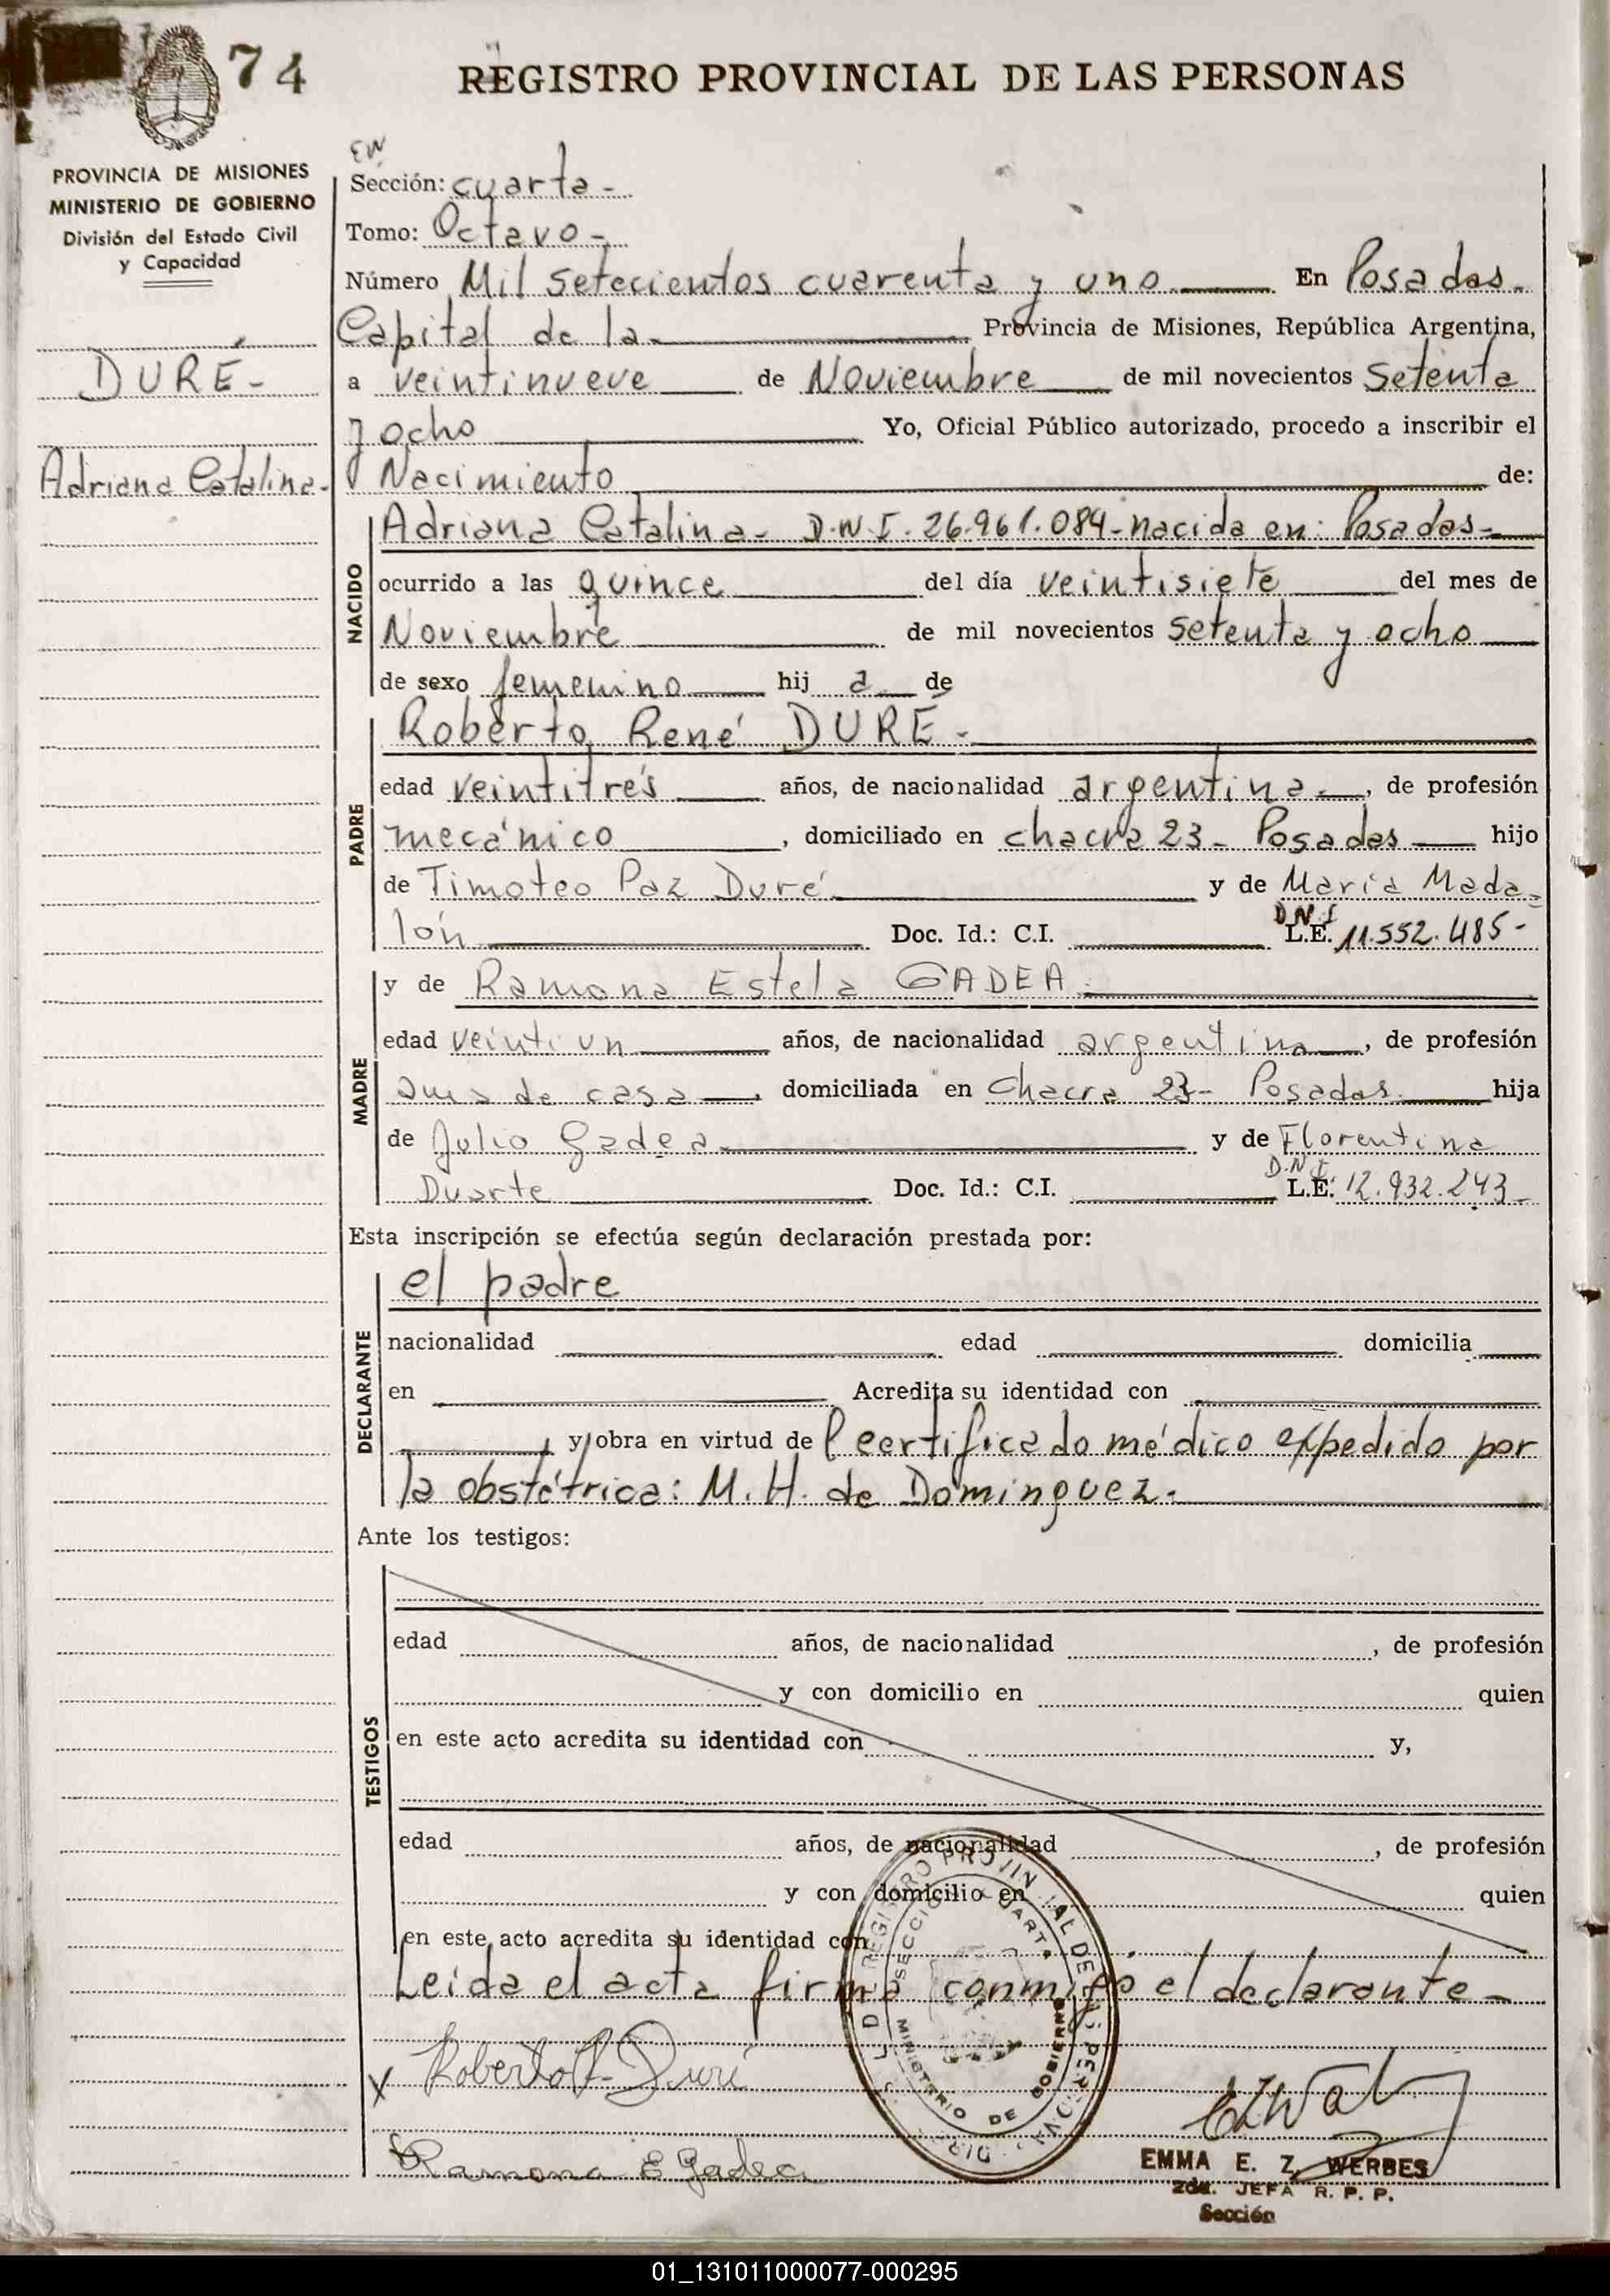 74
REGISTRO PROVINCIAL DE LAS PERSONAS
PROVINCIA DE MISIONES
MINISTERIO DE GOBIERNO
División del Estado Civil
y Capacidad
DURÉ-
Adriana Catalina-
EN
Sección: cuarta-
Tomo: Octavo-
Número Mil setecientos cuarenta y uno En Posadas-
Capital de la Provincia de Misiones, República Argentina,
a veintinueve de Noviembre de mil novecientos setenta
y ocho Yo, Oficial Público autorizado, procedo a inscribir el
Nacimiento de:
NACIDO
Adriana Catalina- D.N.I. 26.961.084-nacida en: Posadas-
ocurrido a las quince del día veintisiete del mes de
Noviembre de mil novecientos setenta y ocho
de sexo femenino hij a de
PADRE
Roberto René DURÉ-
edad veintitrés años, de nacionalidad argentina, de profesión
mecánico, domiciliado en chacra 23- Posadas hijo
de Timoteo Paz Duré y de María Mada-
lón Doc. Id.: C.I. L.E. D.N.I 11.552.485-
MADRE
y de Ramona Estela GADEA
edad veintiun años, de nacionalidad argentina, de profesión
ama de casa, domiciliada en Chacra 23- Posadas hija
de Julio Gadea y de Florentina
Duarte Doc. Id.: C.I. L.E. D.N.I 12.932.243-
Esta inscripción se efectúa según declaración prestada por:
DECLARANTE
el padre
nacionalidad edad domicilia
en Acredita su identidad con
y obra en virtud de l certificado médico expedido por
la obstétrica: M. H. de Dominguez.
Ante los testigos:
TESTIGOS
edad años, de nacionalidad , de profesión
y con domicilio en quien
en este acto acredita su identidad con y,
edad años, de nacionalidad , de profesión
y con domicilio en quien
en este acto acredita su identidad con
Leida el acta firma conmigo el declarante-
REGISTRO PROVINCIAL DE LAS PERSONAS
SECCION CUARTA
MINISTERIO DE GOBIERNO
x Roberto R. Duré
Ramona E Gadea
EMMA E. Z. WERBES
2da. JEFA R. P. P.
Sección
01_131011000077-000295